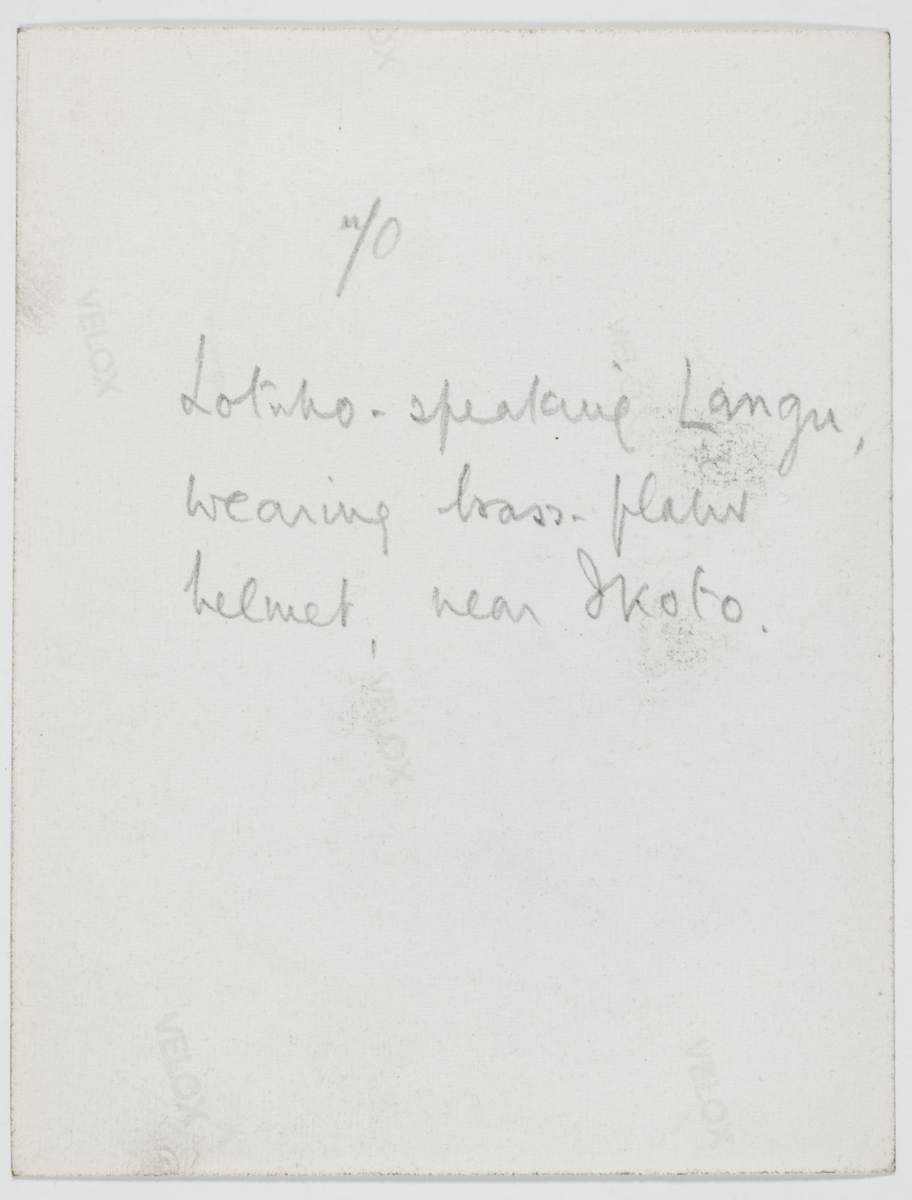 VELOX
n/O
VELOX
VELOX
Lotuho-speaking Langu,
wearing brass-plated
helmet, near Ikoto.
VELOX
VELOX
VELOX